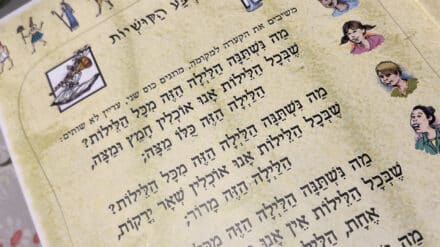 הַקּוּשְׁיוֹת
משיבים את הקערה למקומה. מוזגים כוס שני, עדיין לא שותים:
מַה נִּשְׁתַּנָּה הַלַּיְלָה הַזֶּה מִכָּל הַלֵּילוֹת?
שֶׁבְּכָל הַלֵּילוֹת אָנוּ אוֹכְלִין חָמֵץ וּמַצָּה,
הַלַּיְלָה הַזֶּה כֻּלּוֹ מַצָּה;
מַה נִּשְׁתַּנָּה הַלַּיְלָה הַזֶּה מִכָּל הַלֵּילוֹת?
שֶׁבְּכָל הַלֵּילוֹת אָנוּ אוֹכְלִין שְׁאָר יְרָקוֹת,
הַלַּיְלָה הַזֶּה מָרוֹר,
מַה נִּשְׁתַּנָּה הַלַּיְלָה הַזֶּה מִכָּל הַלֵּילוֹת?
שֶׁבְּכָל הַלֵּילוֹת אֵין אָנוּ
אֶחָת, הַלַּיְלָה